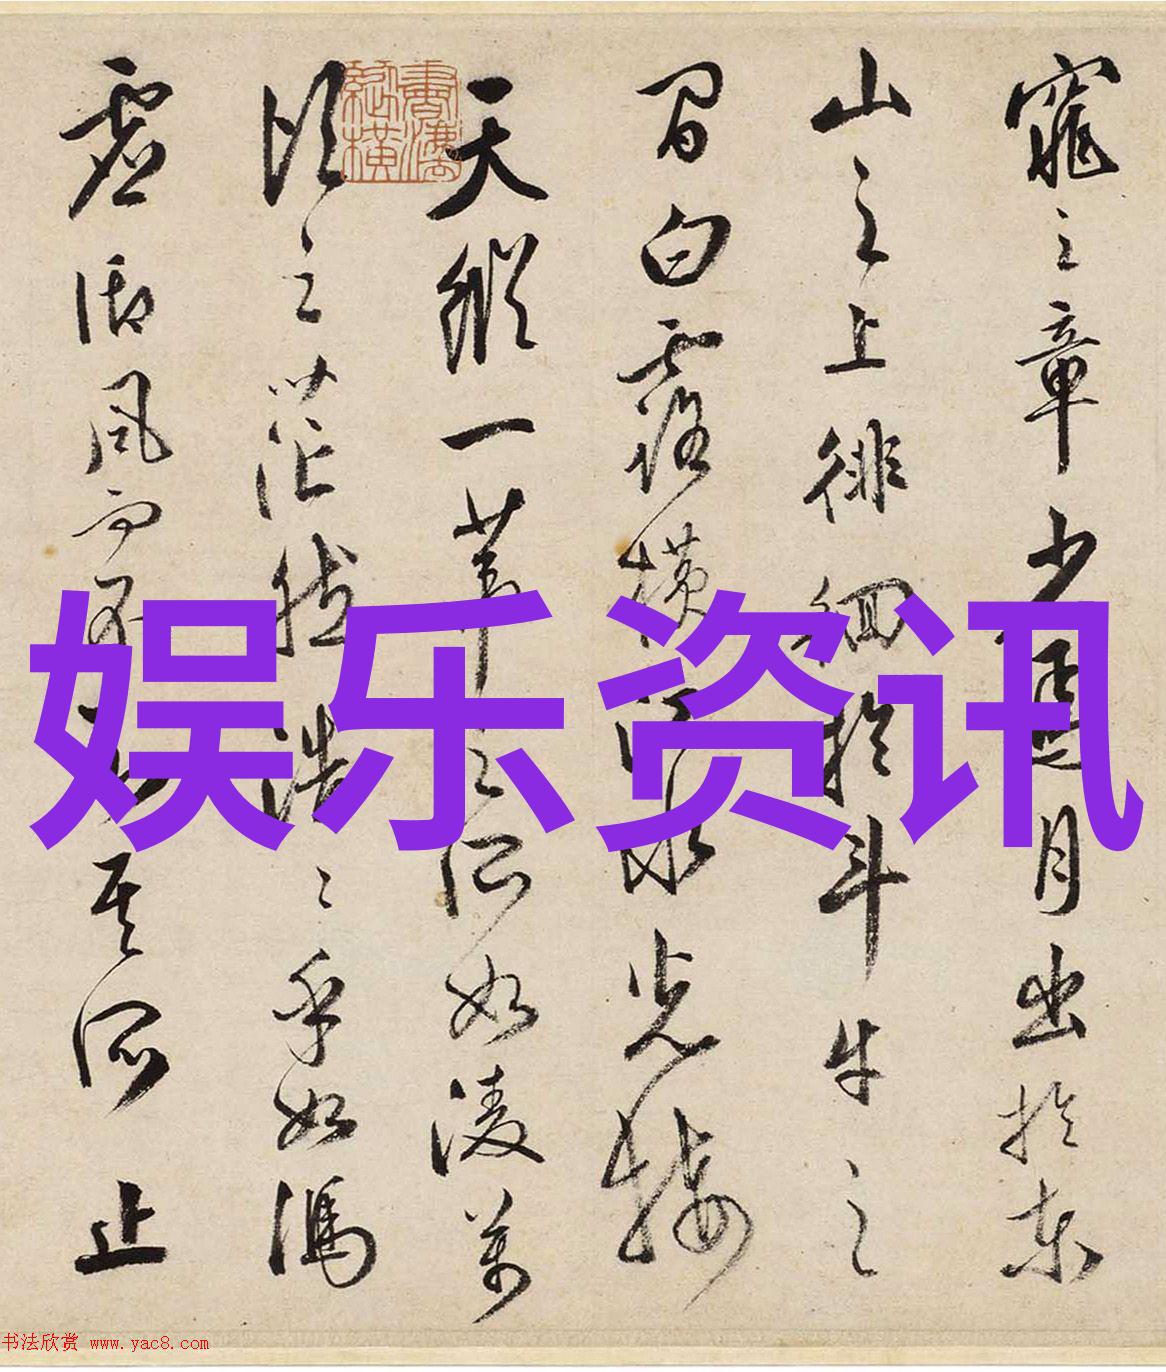 窕之章少焉月出於东
山之上徘徊於斗牛之
间白露横江水光接
天纵一苇之所如凌万
顷之茫然浩〻乎如冯
虚御风而不知其所止
書灋縱橫
娱乐资讯
书法欣赏 www.yac8.com